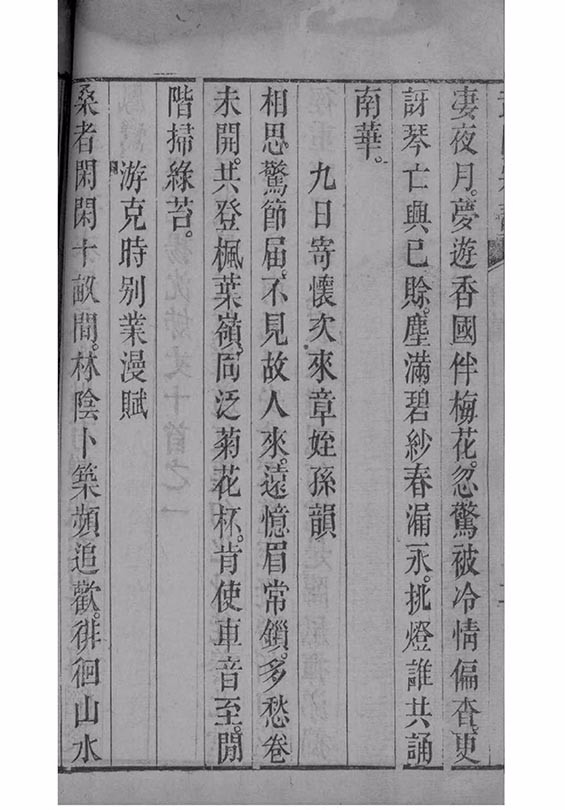 凄夜月夢遊香國伴梅花忽驚被冷情偏杳更
訝琴亡興已賒塵滿碧紗春漏永挑燈誰共誦
南華
九日寄懷次來章姪孫韻
相思驚節届不見故人來遠憶眉常鎖多愁卷
未開共登楓葉嶺同泛菊花杯肯使車音至閒
階掃綠苔
游克時别業漫賦
桑者閑閑十畝間林陰卜築頻追歡徘徊山水